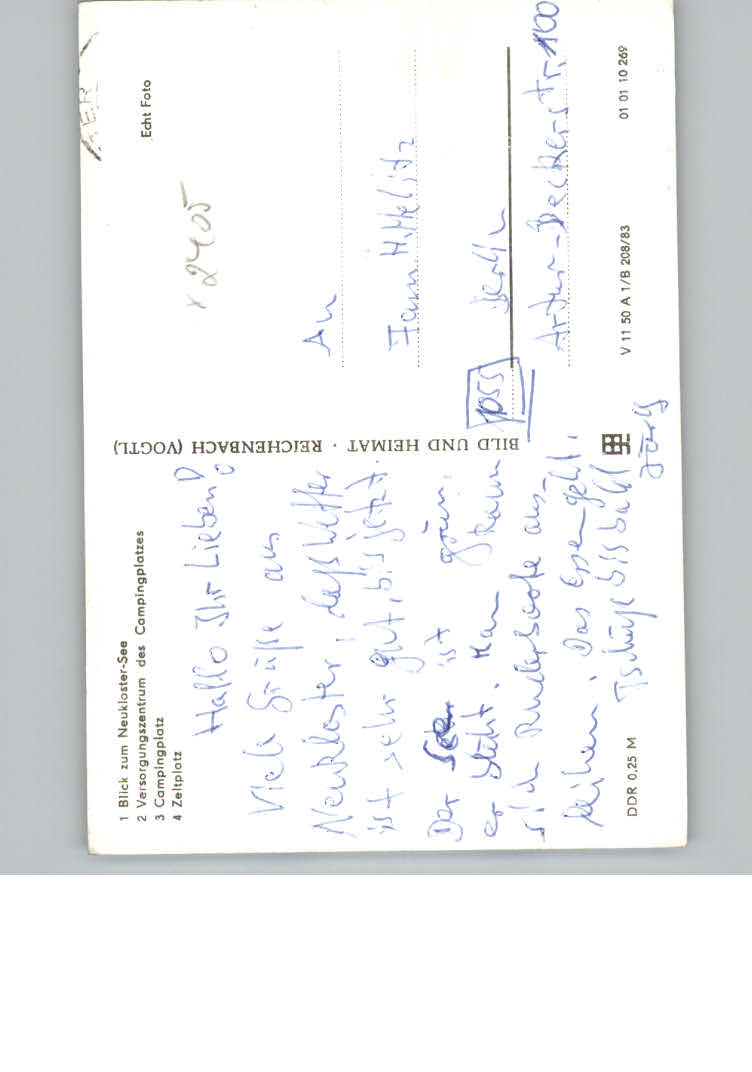 1 Blick zum Neukloster-See
2 Versorgungszentrum des Campingplatzes
3 Campingplatz
4 Zeltplatz
Hallo Ihr Lieben!
Viele Grüße aus
Neukloster, daß Wetter
ist sehr gut, bis jetzt.
Der See ist grün,
er blüht. Man kann
sich Ruderboote aus-
leihen. Das Essen geht.
Tschüß bis bald
Jörg
DDR 0,25 M
BILD UND HEIMAT · REICHENBACH (VOGTL)
Echt Foto
2405
An
Fam. Hittelitz
1055 Berlin
Artur-Becker-str. 100
V 11 50 A 1/B 208/83
01 01 10 269